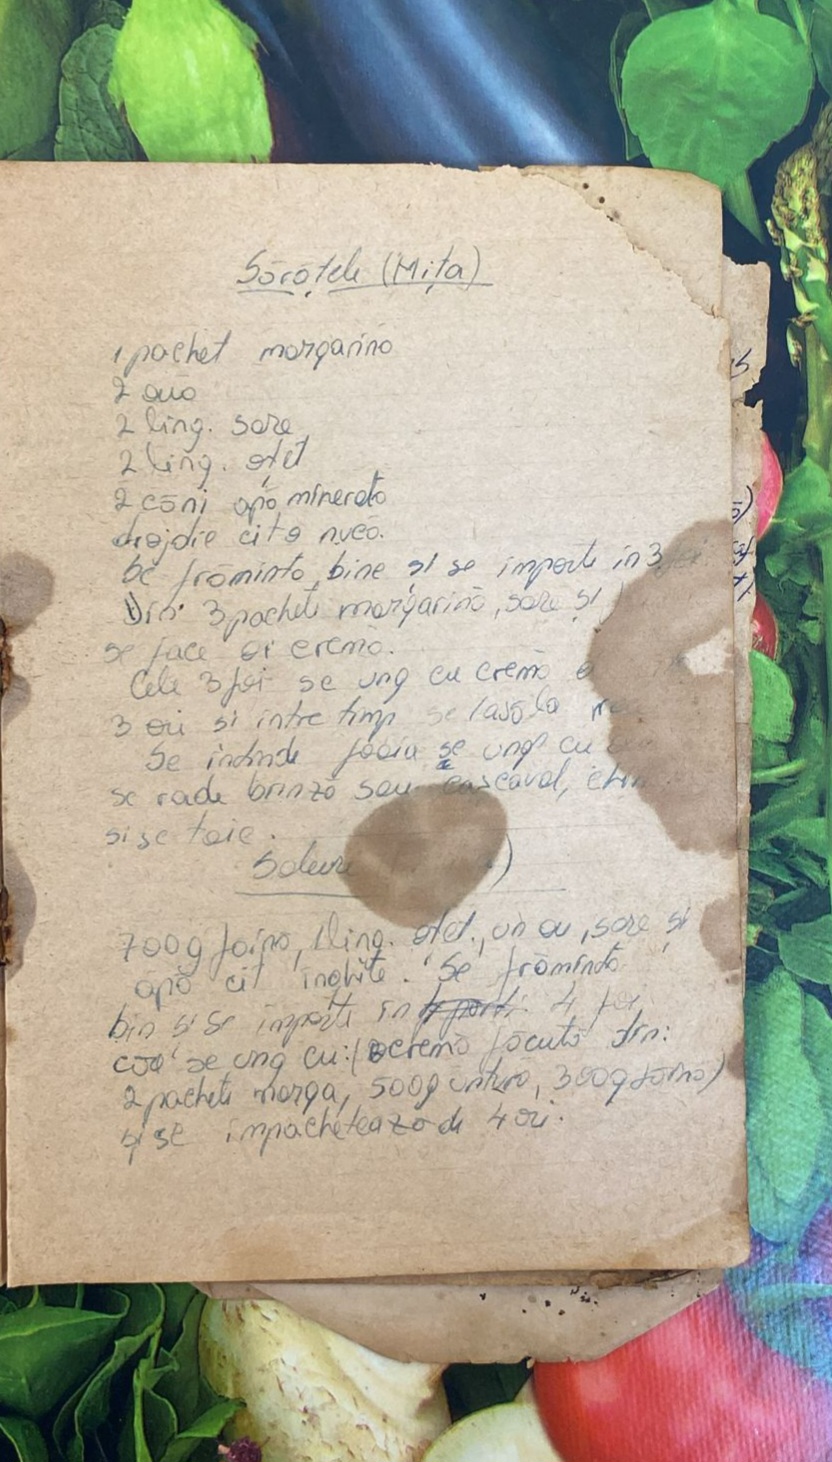 Sărățele (Mița)
1 pachet margarină
2 ouă
2 ling. sare
2 ling. oțet
2 căni apă minerală
drojdie cît o nucă.
Se frămîntă bine și se imparte in 3
Din 3 pachete margarină, sare și
se face o cremă.
Cele 3 foi se ung cu cremă
3 ori si intre timp se lasă la
Se intinde foaia se unge cu
se rade brînză sau cascaval,
si se taie.
700g făină, 1 ling. oțet, un ou, sare și
apă cît inghite. Se frămîntă
bin si se imparte in 4 foi
care se ung cu: (cremă făcută din:
2 pachete marga, 500g untură, 300g făină)
și se impachetează de 4 ori.